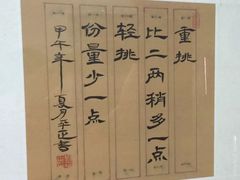 重挑
比二两稍多一点
轻挑
份量少一点
甲午年夏月辛正书